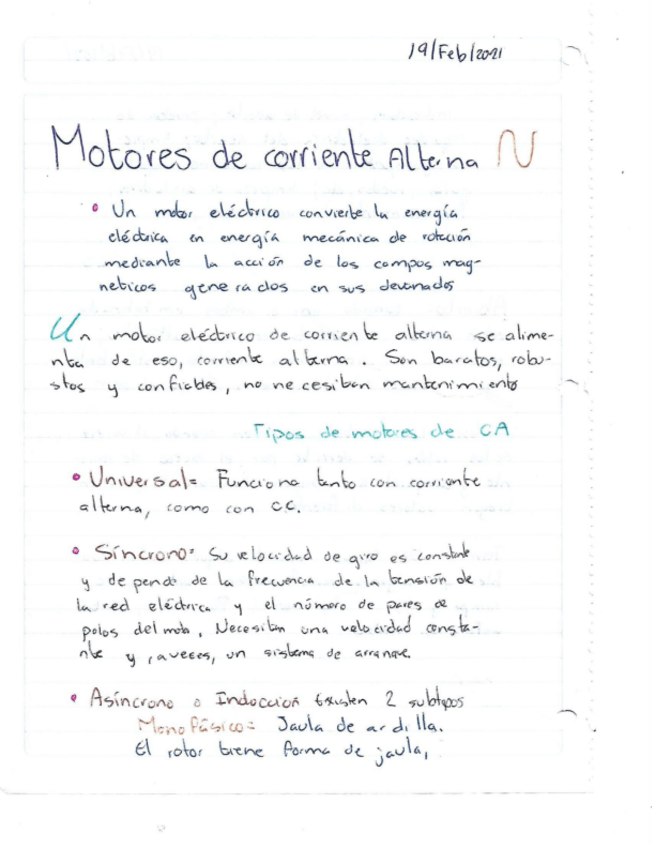 19/Feb/2021
Motores de corriente Alterna
• Un motor eléctrico convierte la energía
eléctrica en energía mecánica de rotación
mediante la acción de los campos mag-
neticos generados en sus devanados
Un motor eléctrico de corriente alterna se alime-
nta de eso, corriente alterna. Son baratos, robu-
stos y confiables, no necesitan mantenimiento
Tipos de motores de CA
• Universal= Funciona tanto con corriente
alterna, como con C.C.
• Síncrono= Su velocidad de giro es constante
y depende de la frecuencia de la tensión de
la red eléctrica y el número de pares de
polos del motor. Necesitan una velocidad consta-
nte y, a veces, un sistema de arranque.
• Asíncrono o Inducción Existen 2 subtipos
Monofásico= Jaula de ardilla.
El rotor tiene forma de jaula,